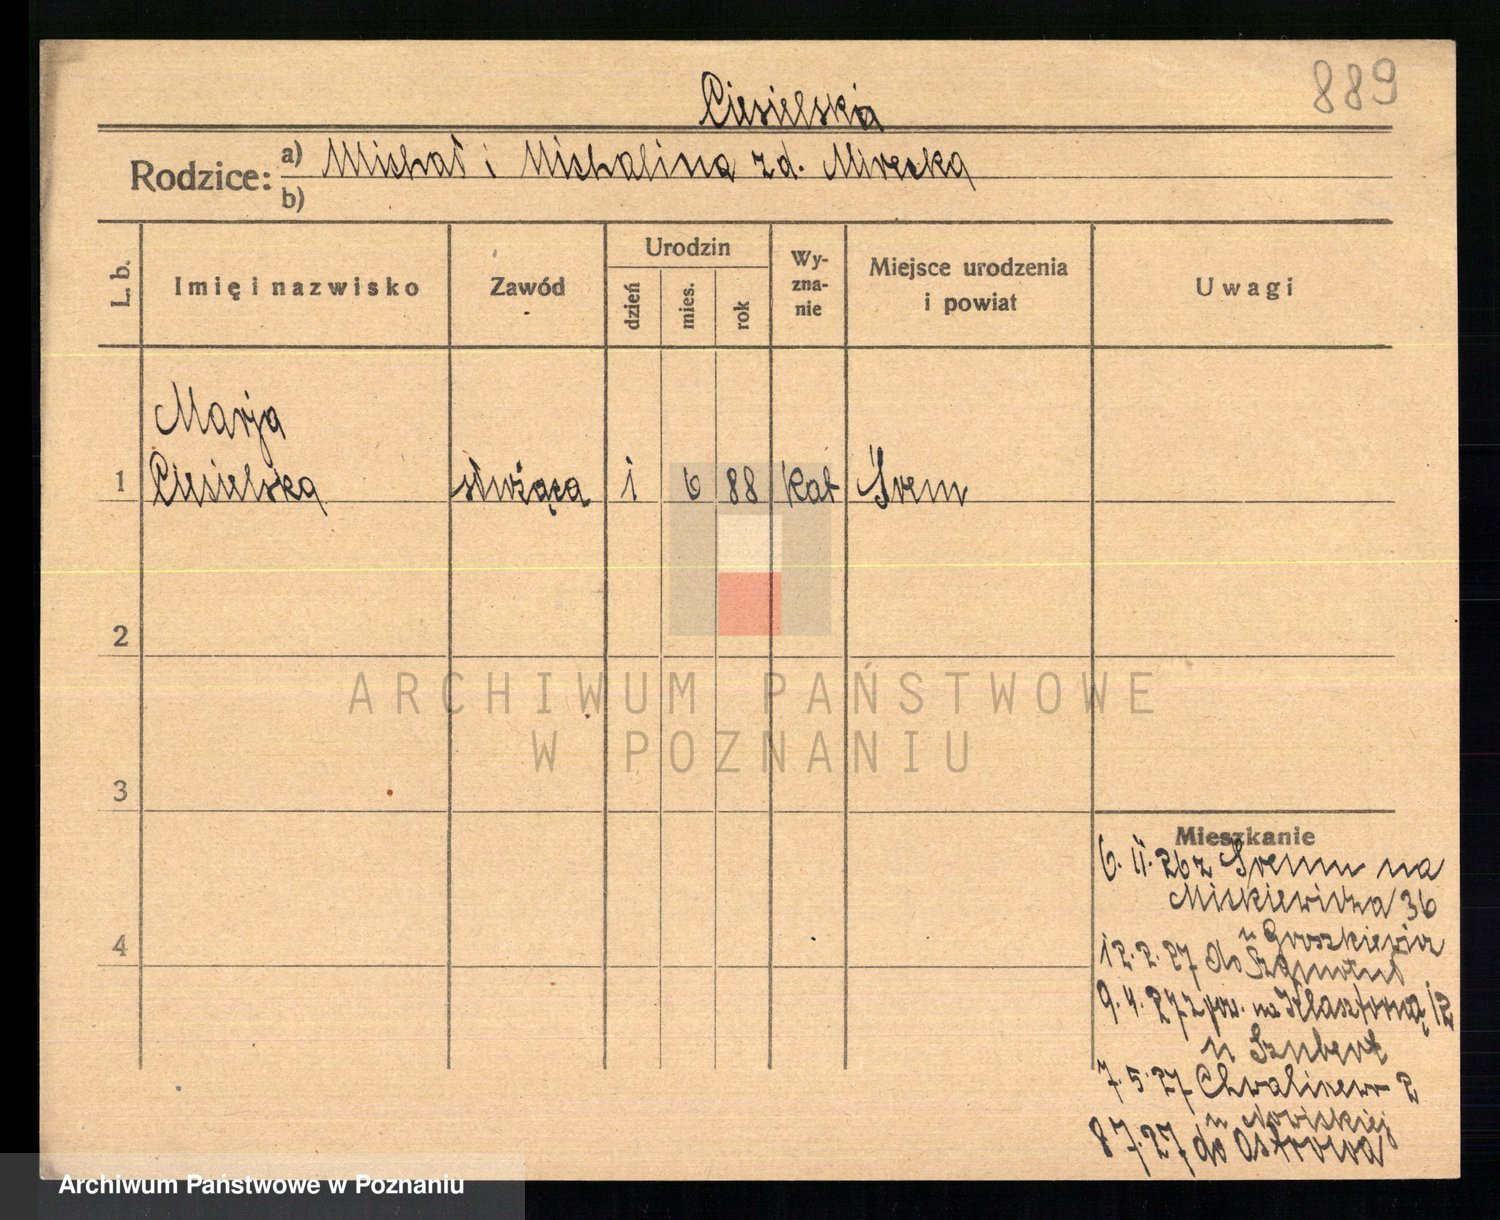 889
Ciesielska
Rodzice: a) Michał i Michalina zd. Mirecka
b)
L. b. Imię i nazwisko Zawód Urodzin dzień mies. rok Wyznanie Miejsce urodzenia i powiat Uwagi
Marja
1 Ciesielska służąca 1 6 88 kat Śrem
2
3
4
Mieszkanie
6. 11. 26 z Śremu na
Mickiewicza 36
u
12. 2. 27 do Szamotuł
9. 4. 27 z pow. na Klasztorną 12
u Szubert
7. 5. 27 Chwaliszewo 2
u
8 7. 27 do Ostrowa
ARCHIWUM PAŃSTWOWE
W POZNANIU
Archiwum Państwowe w Poznaniu